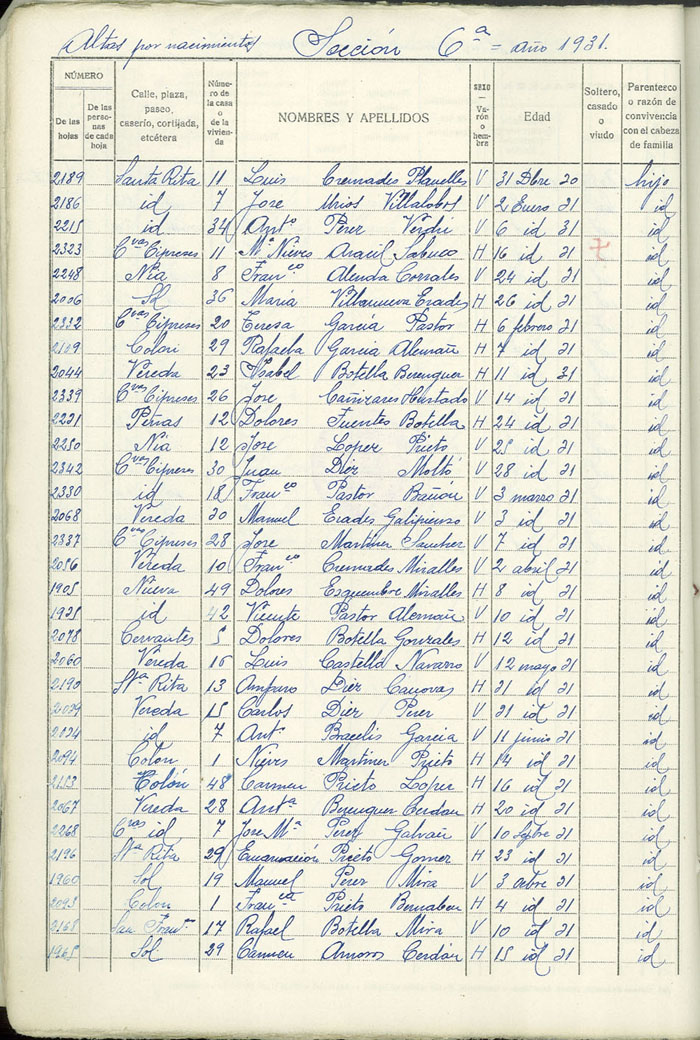 Altas por nacimientos Sección 6ª = año 1931.
NÚMERO
De las hojas
De las personas de cada hoja
Calle, plaza, paseo, caserío, cortijada, etcétera
Número de la casa o de la vivienda
NOMBRES Y APELLIDOS
SEXO — Varón o hembra
Edad
Soltero, casado o viudo
Parentesco o razón de convivencia con el cabeza de familia
2189 Santa Rita 11 Luis Cremades Planelles V 31 Dbre 30 hijo
2186 id 7 Jose Urios Villalobos V 2 Enero 31 id
2215 id 34 Antº Perez Verdú V 6 id 31 id
2323 Cvas Cipreses 11 Mª Nieves Aracil Sabuco H 16 id 31 id
2248 Nia 8 Franco Alenda Corrales V 24 id 31 id
2006 Sol 36 Maria Villanueva Erades H 26 id 31 id
2332 Cvas Cipreses 20 Teresa Garcia Pastor H 6 febrero 31 id
2109 Colon 29 Rafaela Garcia Alemañ H 7 id 31 id
2044 Vereda 23 Isabel Botella Berenguer H 11 id 31 id
2339 Cvas Cipreses 26 Jose Cañizares Hurtado V 14 id 31 id
2221 Peñas 12 Dolores Fuentes Botella H 24 id 31 id
2250 Nia 12 Jose Lopez Prieto V 25 id 31 id
2342 Cvas Cipreses 30 Juan Diez Moltó V 28 id 31 id
2330 id 18 Franco Pastor Bañón V 3 marzo 31 id
2068 Vereda 30 Manuel Erades Galipienso V 3 id 31 id
2337 Cvas Cipreses 28 Jose Martinez Sanchez V 7 id 31 id
2056 Vereda 10 Franco Cremades Miralles V 2 abril 31 id
1905 Nueva 49 Dolores Esquembre Miralles H 8 id 31 id
1925 id 42 Vicente Pastor Alemañ V 10 id 31 id
2078 Cervantes 5 Dolores Botella Gonzales H 12 id 31 id
2060 Vereda 16 Luis Castelló Navarro V 12 mayo 31 id
2190 Sta Rita 13 Amparo Diez Canovas H 21 id 31 id
Vereda 15 Carlos Diez Perez V 31 id 31 id
id 7 Antº Garcia V 11 junio 31 id
2094 Colon 1 Nieves Martinez Prieto H 14 id 31 id
2113 Colón 48 Carmen Prieto Lopez H 16 id 31 id
2067 Vereda 28 Antª Berenguer Cerdan H 20 id 31 id
2268 Cvas id 7 Jose Mª Perez Galvañ V 10 Sepbre 31 id
2196 Sta Rita 29 Encarnación Prieto Gomez H 23 id 31 id
1960 Sol 19 Manuel Perez Mira V 3 Octbre 31 id
2093 Colon 1 Franca Prieto Bernabeu H 4 id 31 id
2168 San Franco 17 Rafael Botella Mira V 10 id 31 id
1965 Sol 29 Carmen Amoros Cerdán H 15 id 31 id